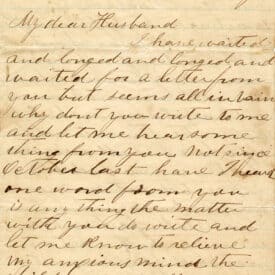 My dear Husband
I have waited
and longed and longed and
waited for a letter from
you but seems all in vain
why dont you write to me
and let me hear some
thing from you Not since
October last have I hear
one word from you
is any thing the matter
with you do write and
let me know to relieve
my anxious mind the